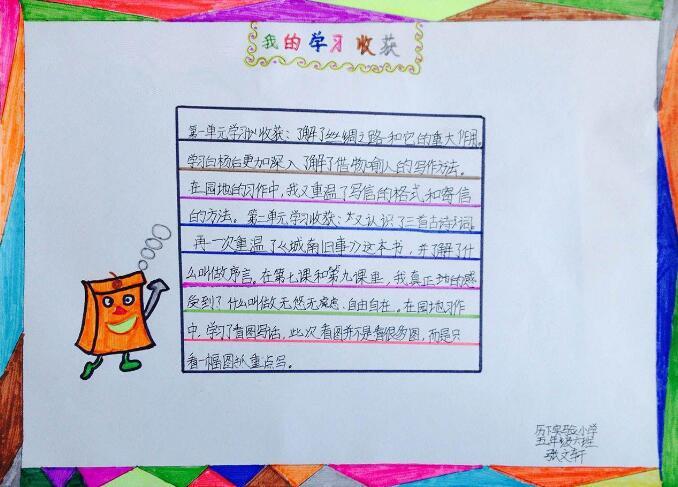 我的学习收获
第一单元学习收获：了解了丝绸之路和它的重大作用。
学习白杨后更加深入了解了借物喻人的写作方法。
在园地的习作中，我又重温了写信的格式和寄信
的方法。第二单元学习收获：又认识了三首古诗词。
再一次重温了《城南旧事》这本书，并了解了什
么叫做序言。在第七课和第九课里，我真正地的感
受到了什么叫做无怨无虑、自由自在。在园地习作
中，学习了看图写话，此次看图并不是看很多图，而是只
看一幅图从重点写。
历下实验小学
五年级六班
张文轩